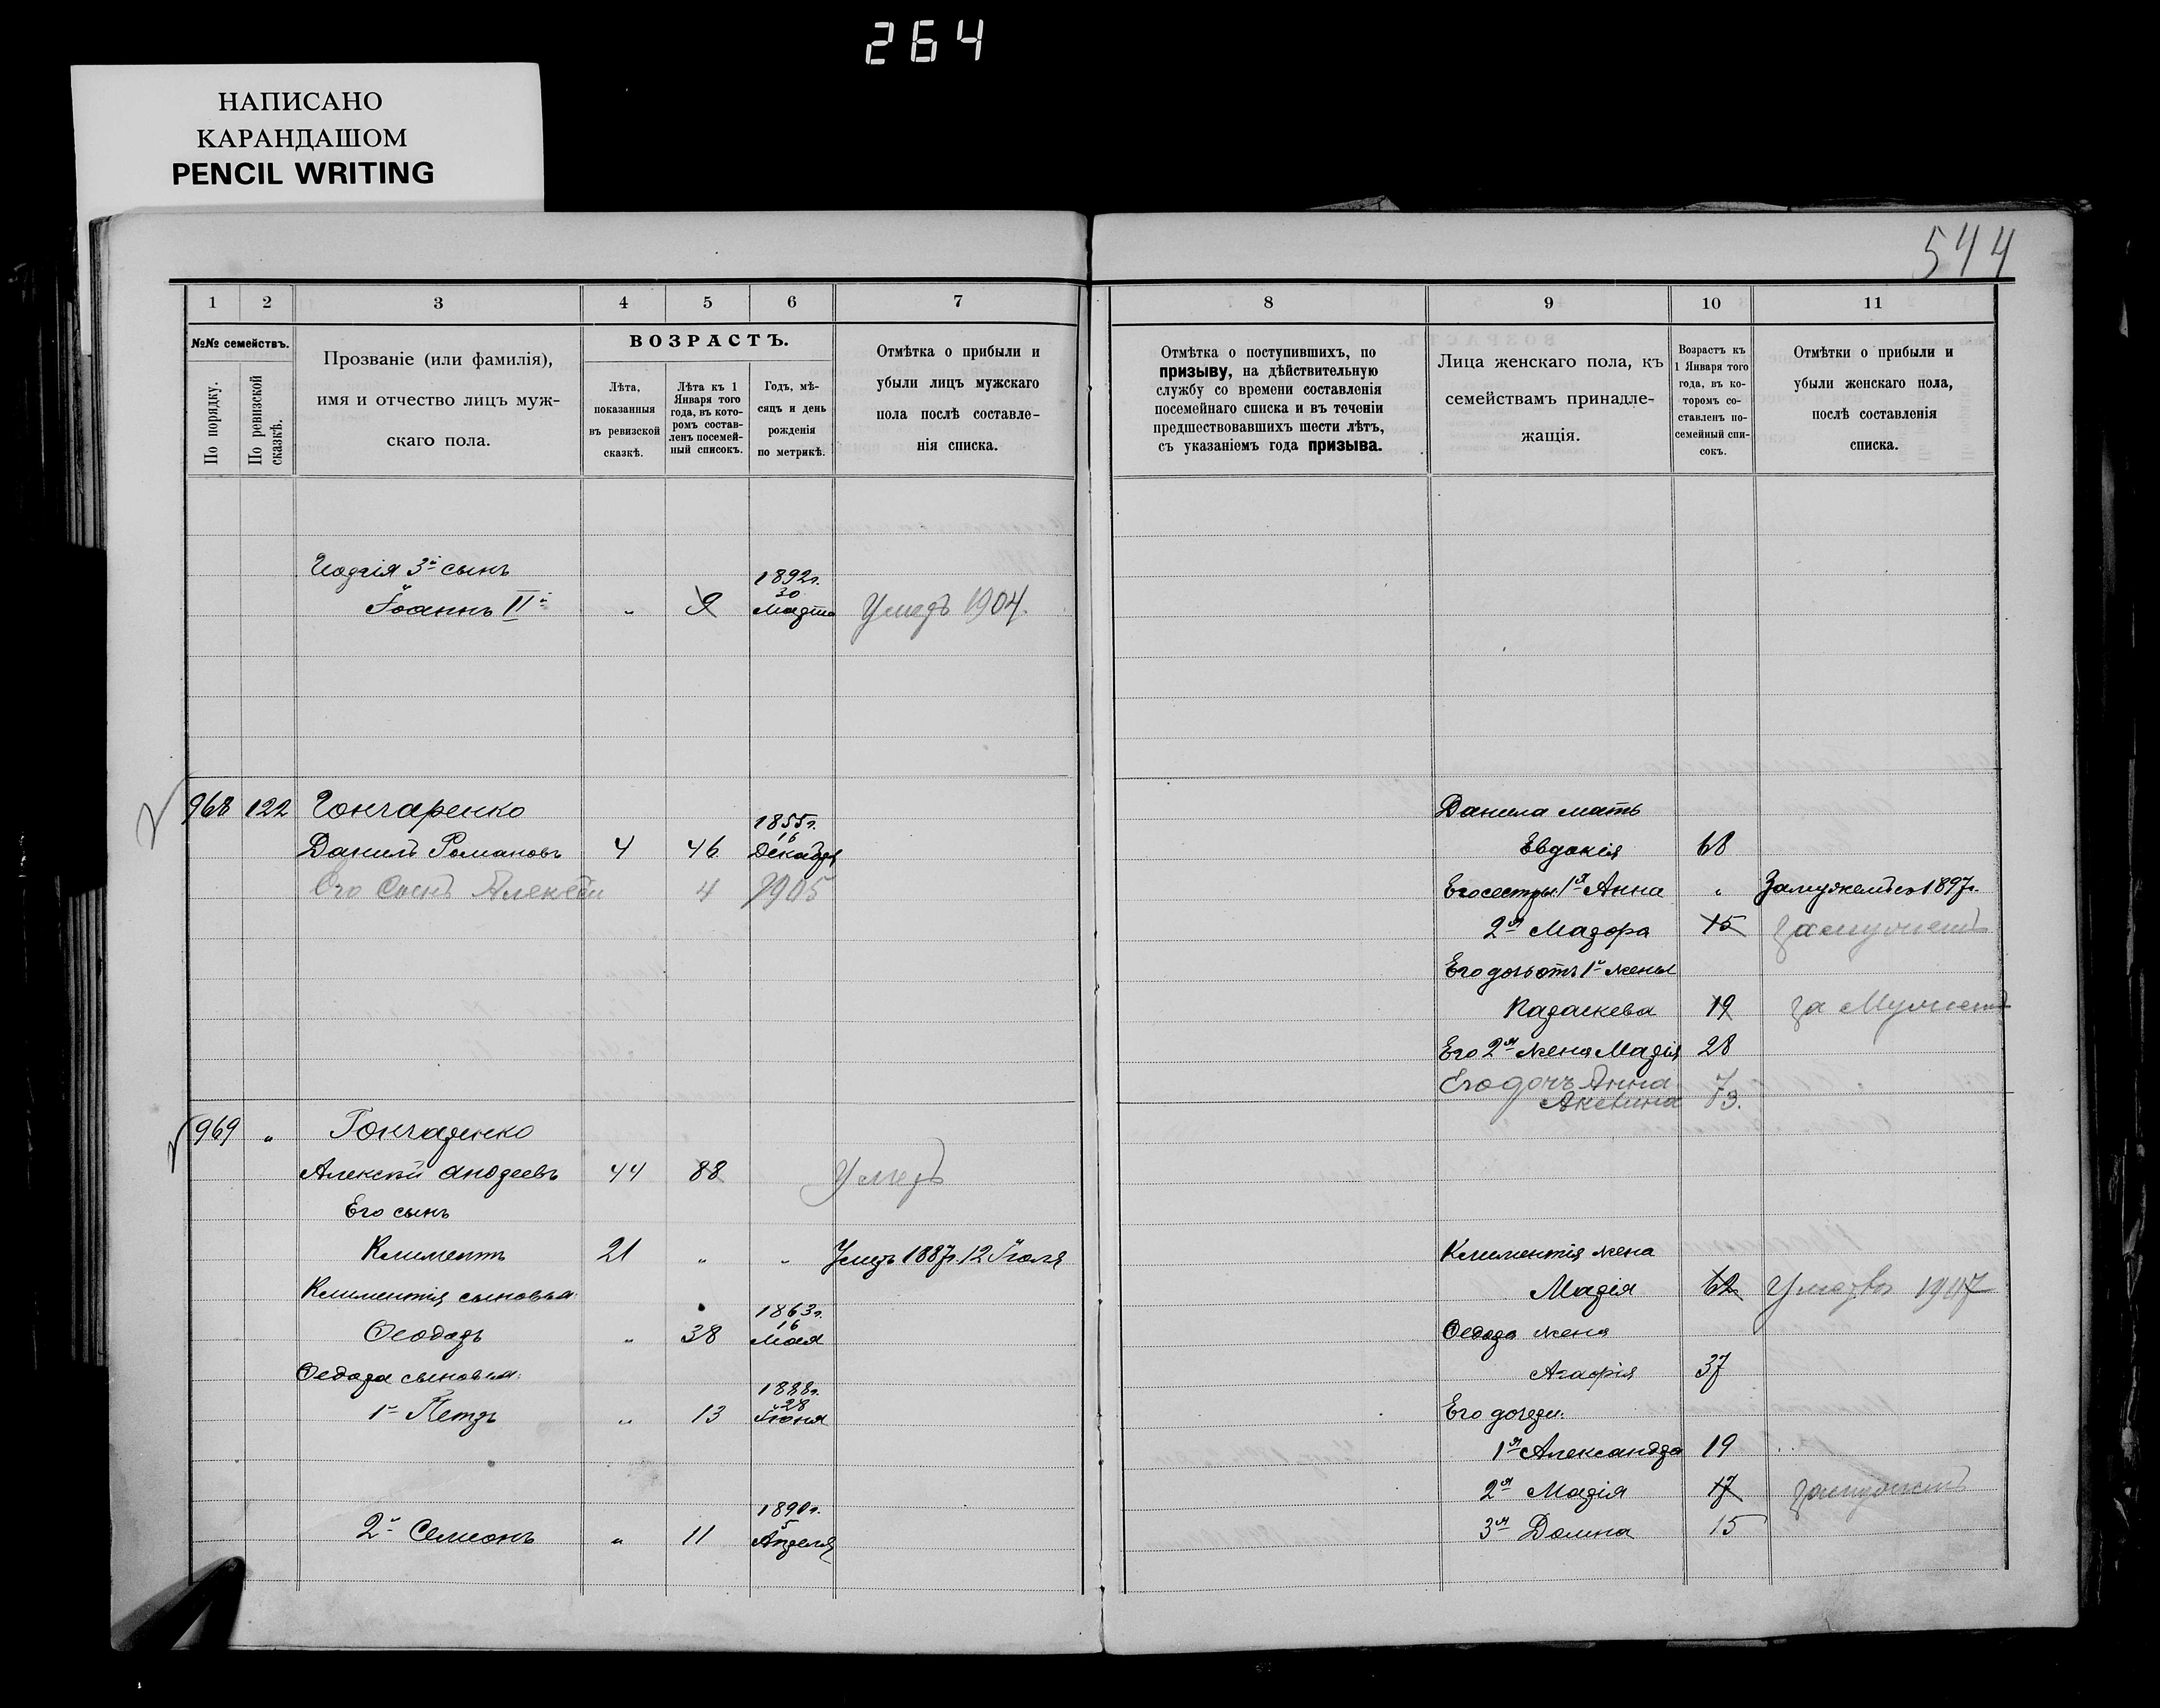 264
НАПИСАНО
КАРАНДАШОМ
PENCIL WRITING
544
1 2 3 4 5 6 7
№№ семействъ.
По порядку.
По ревизской сказкѣ.
Прозваніе (или фамилія),
имя и отчество лицъ муж-
скаго пола.
ВОЗРАСТЪ.
Лѣта,
показанныя
въ ревизской
сказкѣ.
Лѣта къ 1
Января того
года, въ кото-
ромъ состав-
ленъ посемей-
ный списокъ.
Годъ, мѣ-
сяцъ и день
рожденія
по метрикѣ.
Отмѣтка о прибыли и
убыли лицъ мужскаго
пола послѣ составле-
нія списка.
3й сынъ
1892г.
30
Іоаннъ IIй " 9 Марта Умеръ 1904.
968 122 Гончаренко
1855г.
16
Данилъ Романовъ 4 46 Декабря
Его Сынъ Алексѣй 4 1905
969 " Гончаренко
Алексѣй Андреевъ 44 88 Умеръ
Его сынъ
Климентъ 21 " " Умеръ 1887г. 12 Іюля
Климентія сыновья:
1863г.
16
Ѳеодоръ " 38 Мая
Ѳедора сыновья:
1888г.
28
1й Петръ " 13 Іюня
1890г.
5
2й Семионъ " 11 Апреля
8 9 10 11
Отмѣтка о поступившихъ, по
призыву, на дѣйствительную
службу со времени составленія
посемейнаго списка и въ теченіи
предшествовавшихъ шести лѣтъ,
съ указаніемъ года призыва.
Лица женскаго пола, къ
семействамъ принадле-
жащія.
Возрастъ къ
1 Января того
года, въ ко-
торомъ со-
ставленъ по-
семейный спи-
сокъ.
Отмѣтки о прибыли и
убыли женскаго пола,
послѣ составленія
списка.
Данила мать
Евдокія 68
Его сестры: 1я Анна " Замужемъ съ 1897г.
2я Мавра 15 замужемъ
Его дочь отъ 1й жены
Параскева 19 за Мужемъ
Его 2я жена Марія 28
Его дочъ Анна 7
Акелина 3.
Климентія жена
Марія 62 Умерла 1907
Ѳедора жена
Агафія 37
Его дочери:
1я Александра 19
2я Марія 17 замужемъ
3я Домна 15